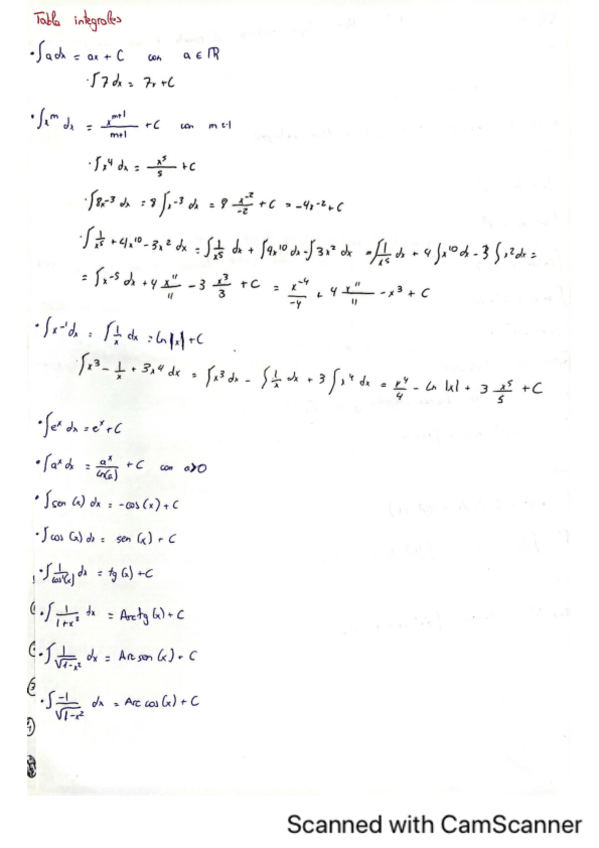 Tabla integrales
· ∫a dx = ax + C con a ∈ ℝ
· ∫7 dx = 7x + C
· ∫x^m dx = x^(m+1)/(m+1) + C con
· ∫x^4 dx = x^5/5 + C
· ∫8x^-3 dx = 8 ∫x^-3 dx = 8 x^-2/-2 + C = -4x^-2 + C
· ∫1/x^5 + 4x^10 - 3x^2 dx = ∫1/x^5 dx + ∫4x^10 dx - ∫3x^2 dx = ∫1/x^5 dx + 4 ∫x^10 dx - 3 ∫x^2 dx =
= ∫x^-5 dx + 4 x^11/11 - 3 x^3/3 + C = x^-4/-4 + 4 x^11/11 - x^3 + C
· ∫x^-1 dx = ∫1/x dx = Ln|x| + C
· ∫x^3 - 1/x + 3x^4 dx = ∫x^3 dx - ∫1/x dx + 3 ∫x^4 dx = x^4/4 - Ln |x| + 3 x^5/5 + C
· ∫e^x dx = e^x + C
· ∫a^x dx = a^x/Ln(a) + C con a>0
· ∫sen (x) dx = -cos (x) + C
· ∫cos (x) dx = sen (x) + C
· ∫1/cos²(x) dx = tg (x) + C
· ∫1/(1+x²) dx = Arctg (x) + C
· ∫1/√(1-x²) dx = Arcsen (x) + C
· ∫-1/√(1-x²) dx = Arc cos (x) + C
Scanned with CamScanner